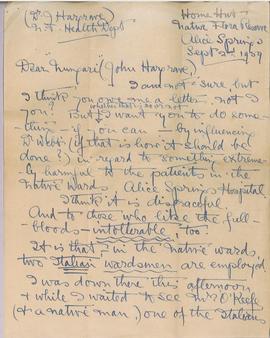 (Dr J Hargrave,
N.T. Health Dept)
Home Hut
Native Flora Reserve
Alice Springs
Sept 2nd 1959
Dear "Nungari" (John Hargrave,)
I am not sure, but
I think you owe me a letter, not I
you! But I want you to do some-
thing — if you can — by influencing
Dr Webb (if that is how it should be
done!) in regard to something extreme-
ly harmful to the patients in the
native wards Alice Springs Hospital
I think it is disgraceful.
And to those who like the full-
bloods — intollerable, too!
It is that, in the native wards
two Italian wardsmen are employed
I was down there this afternoon
& while I waited to see Mr O'Keefe
(& a native man) one of the Italians